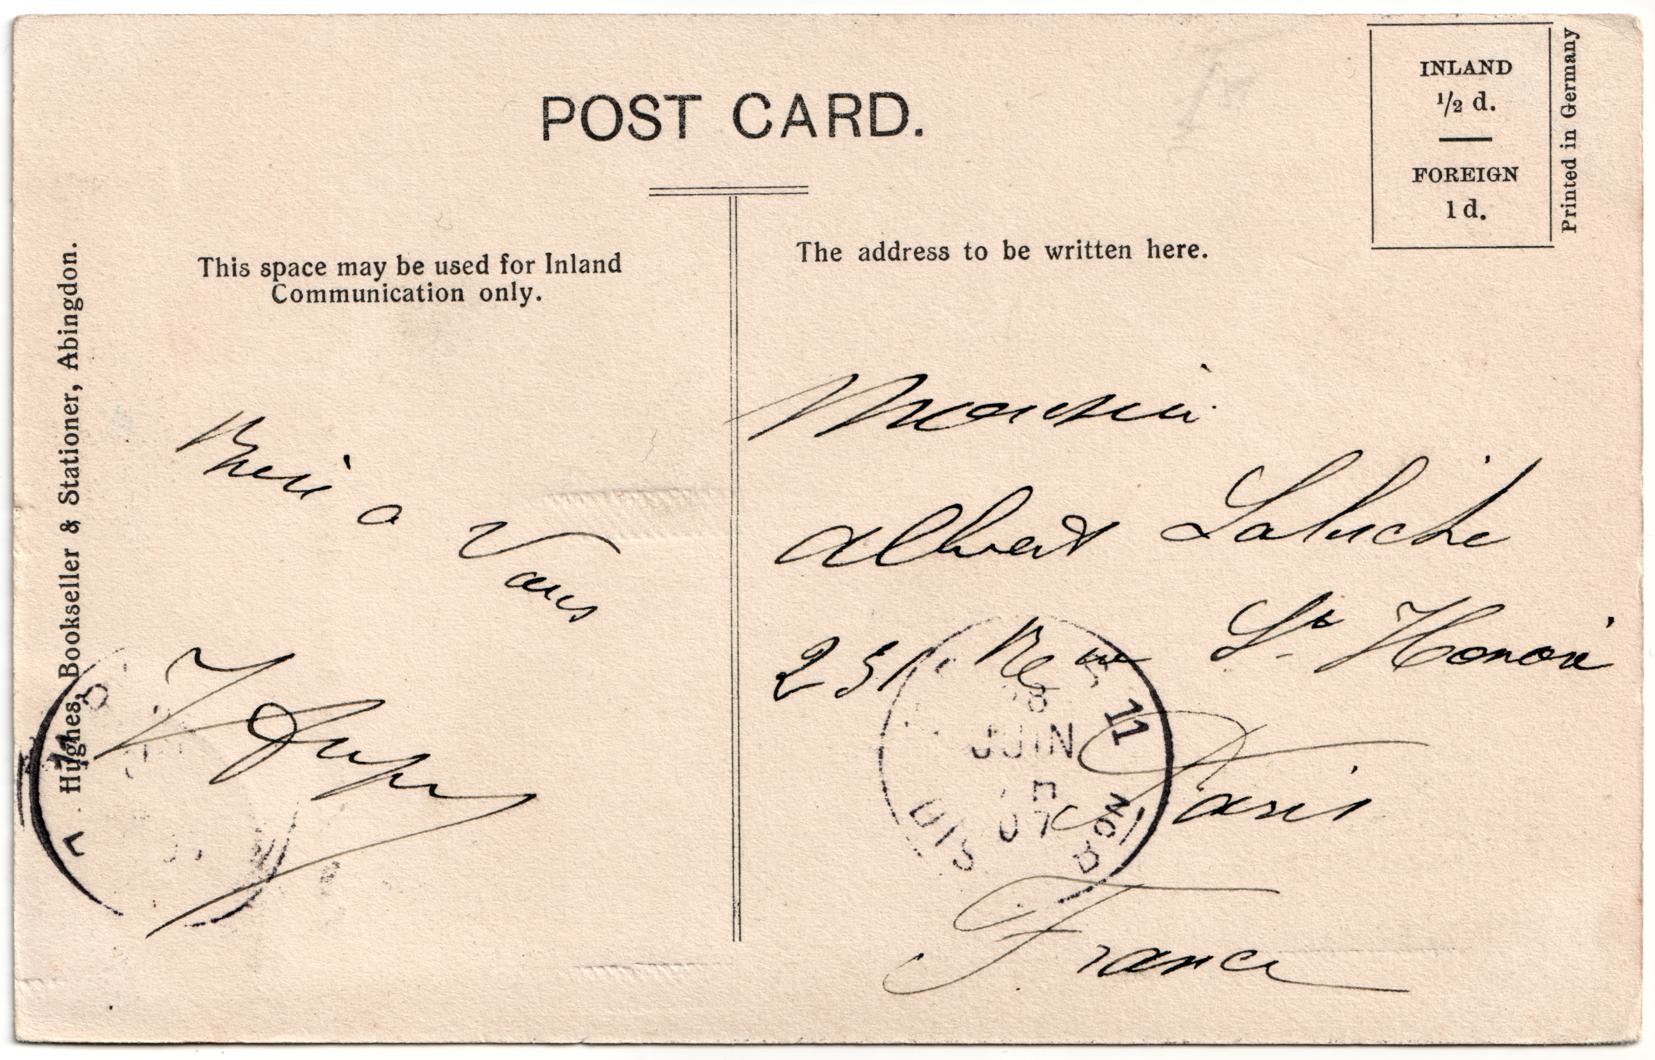 POST CARD.
INLAND
½ d.
FOREIGN
1 d.
Printed in Germany
This space may be used for Inland
Communication only.
The address to be written here.
Hughes, Bookseller & Stationer, Abingdon.
a
Vous
Monsieur
Albert
231 Rue St Honoré
Paris
France
11
JUIN
07
DIS